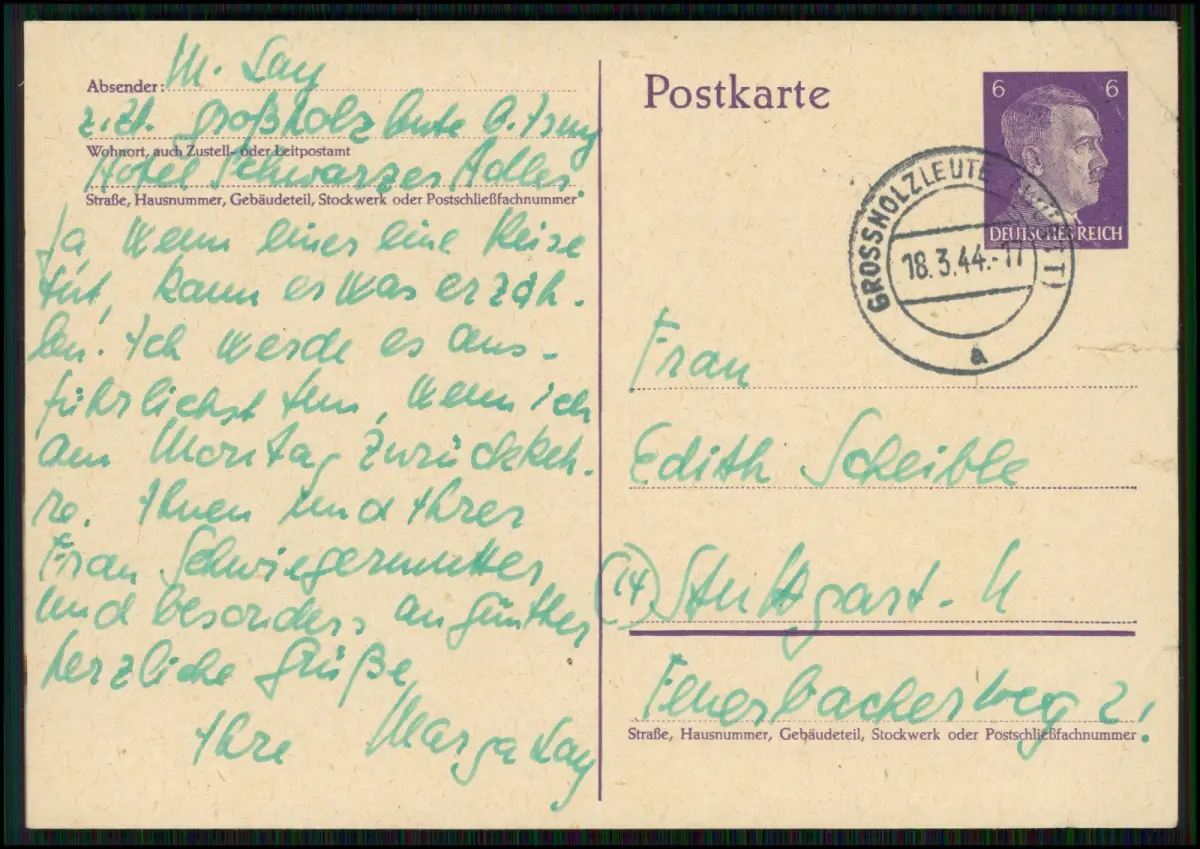 Absender: M. Lay
z.Zt. Großholzleute b. Isny
Wohnort, auch Zustell- oder Leitpostamt
Hotel Schwarzer Adler.
Straße, Hausnummer, Gebäudeteil, Stockwerk oder Postschließfachnummer
Ja, wenn einer eine Reise
tut, kann er was erzäh-
len. Ich werde es aus-
führlichst tun, wenn ich
am Montag zurückkeh-
re. Ihnen und Ihrer
Frau Schwiegermutter
und besonders an Günther
herzliche Grüße
Ihre Marga Lay
Postkarte
6 6
DEUTSCHES REICH
GROSSHOLZLEUTE
18.3.44.-17
a
Frau
Edith Scheible
(14) Stuttgart-N
Feuerbacherweg 2.
Straße, Hausnummer, Gebäudeteil, Stockwerk oder Postschließfachnummer